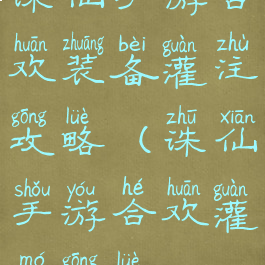 诛仙手游合
huān zhuāng bèi guàn zhù
欢装备灌注
gōng lüè zhū xiān
攻略（诛仙
shǒu yóu hé huān guàn
手游合欢灌
mó gōng lüè